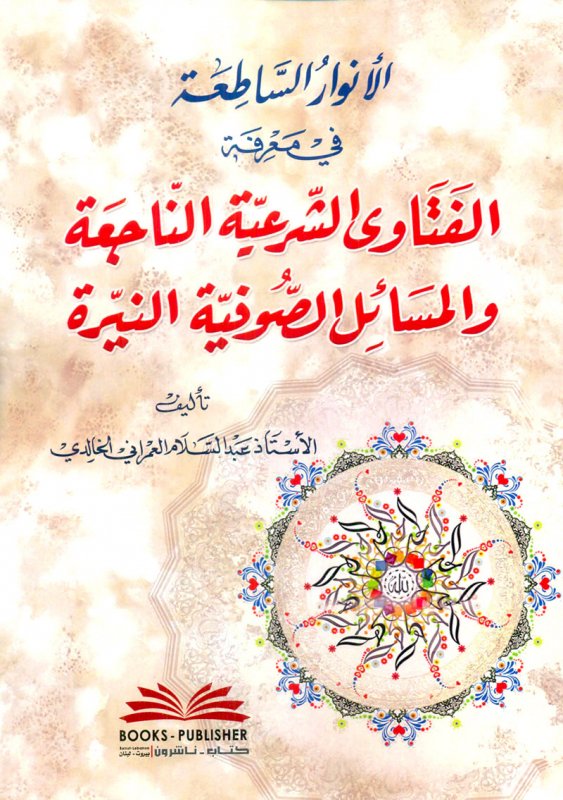 الأنوارُ السَّاطِعَة
في مَعرِفَة
الفَتَاوى الشّرعيّة النّاجعَة
والمَسَائِل الصُّوفيّة النيّرة
تأليف
الأستاذ عبد السَّلام العمراني الخالدي
الله
BOOKS - PUBLISHER
Beirut-Lebanon
كتاب - ناشرون | بيروت - لبنان